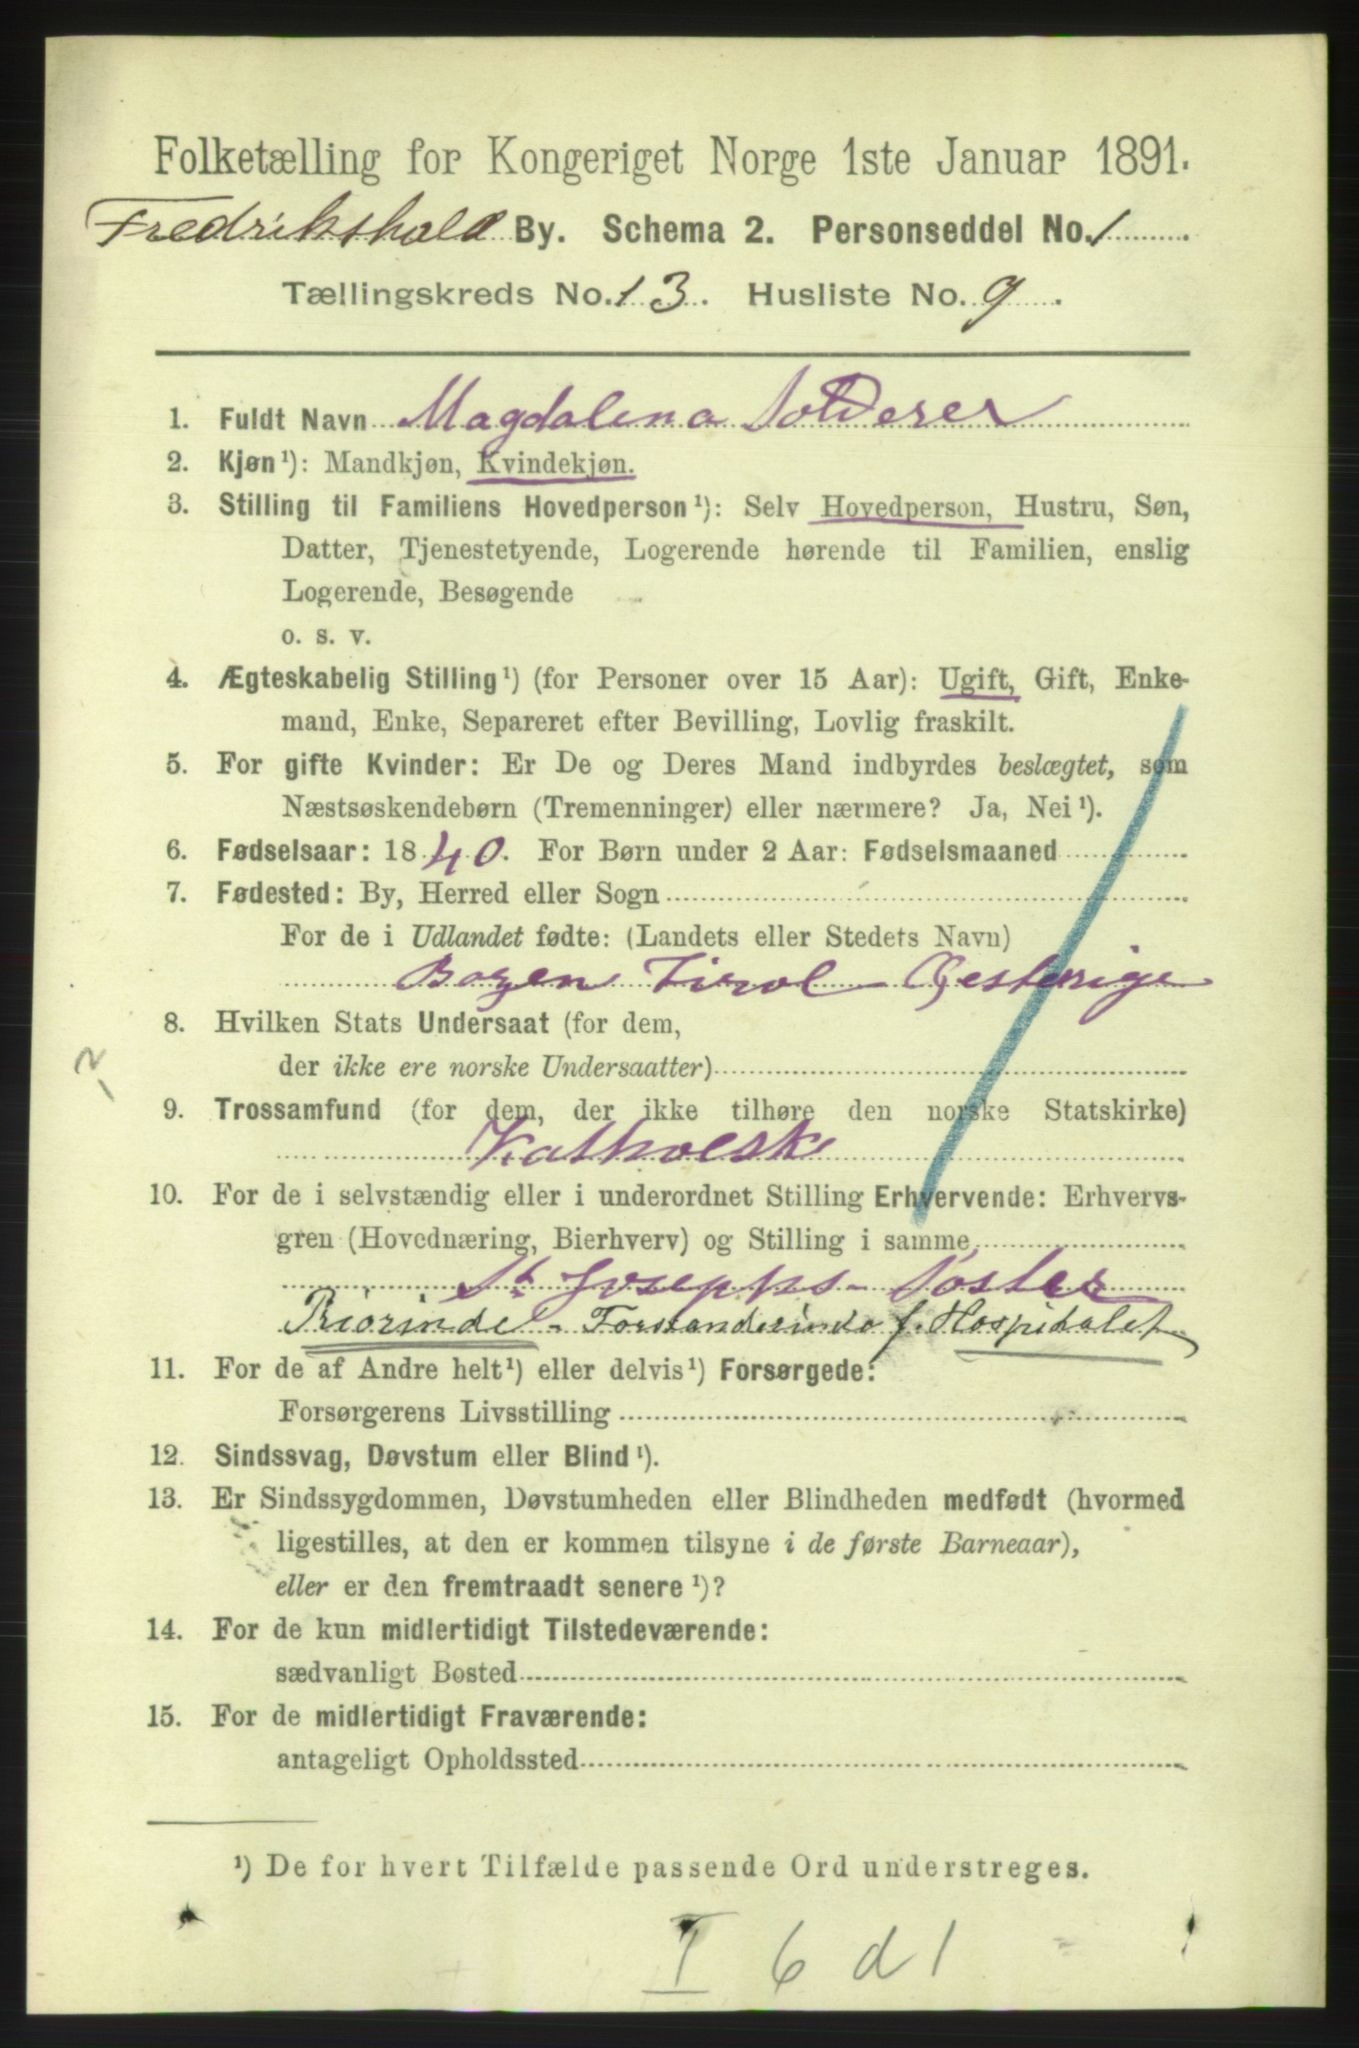 Folketælling for Kongeriget Norge 1ste Januar 1891.
Fredrikshald By. Schema 2. Personseddel No. 1
Tællingskreds No. 13. Husliste No. 9.
1. Fuldt Navn Magdalena Solderer
2. Kjøn¹): Mandkjøn, Kvindekjøn.
3. Stilling til Familiens Hovedperson¹): Selv Hovedperson, Hustru, Søn,
Datter, Tjenestetyende, Logerende hørende til Familien, enslig
Logerende, Besøgende
o. s. v.
4. Ægteskabelig Stilling¹) (for Personer over 15 Aar): Ugift, Gift, Enke-
mand, Enke, Separeret efter Bevilling, Lovlig fraskilt.
5. For gifte Kvinder: Er De og Deres Mand indbyrdes beslægtet, som
Næstsøskendebørn (Tremenninger) eller nærmere? Ja, Nei¹).
6. Fødselsaar: 1840. For Børn under 2 Aar: Fødselsmaaned
7. Fødested: By, Herred eller Sogn
For de i Udlandet fødte: (Landets eller Stedets Navn)
Bozen Tirol - Øesterrige
8. Hvilken Stats Undersaat (for dem,
der ikke ere norske Undersaatter)
9. Trossamfund (for dem, der ikke tilhøre den norske Statskirke)
Katholsk
10. For de i selvstændig eller i underordnet Stilling Erhvervende: Erhvervs-
gren (Hovednæring, Bierhverv) og Stilling i samme
St. Josephs-Søster
Priorinde - Forstanderinde f. Hospitalet
11. For de af Andre helt¹) eller delvis¹) Forsørgede:
Forsørgerens Livsstilling
12. Sindssvag, Døvstum eller Blind¹).
13. Er Sindssygdommen, Døvstumheden eller Blindheden medfødt (hvormed
ligestilles, at den er kommen tilsyne i de første Barneaar),
eller er den fremtraadt senere¹)?
14. For de kun midlertidigt Tilstedeværende:
sædvanligt Bosted
15. For de midlertidigt Fraværende:
antageligt Opholdssted
¹) De for hvert Tilfælde passende Ord understreges.
I 6 d 1